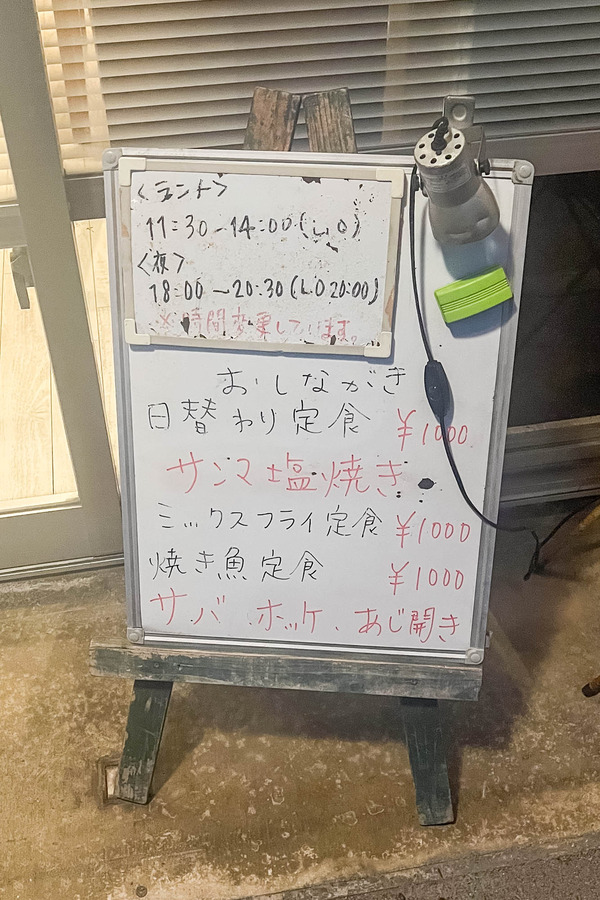 <ランチ>
11:30-14:00(L.O)
<夜>
18:00〜20:30(L.O 20:00)
※時間変更しています。
おしながき
日替わり定食 ¥1000
サンマ塩焼き
ミックスフライ定食 ¥1000
焼き魚定食 ¥1000
サバ、ホッケ、あじ開き